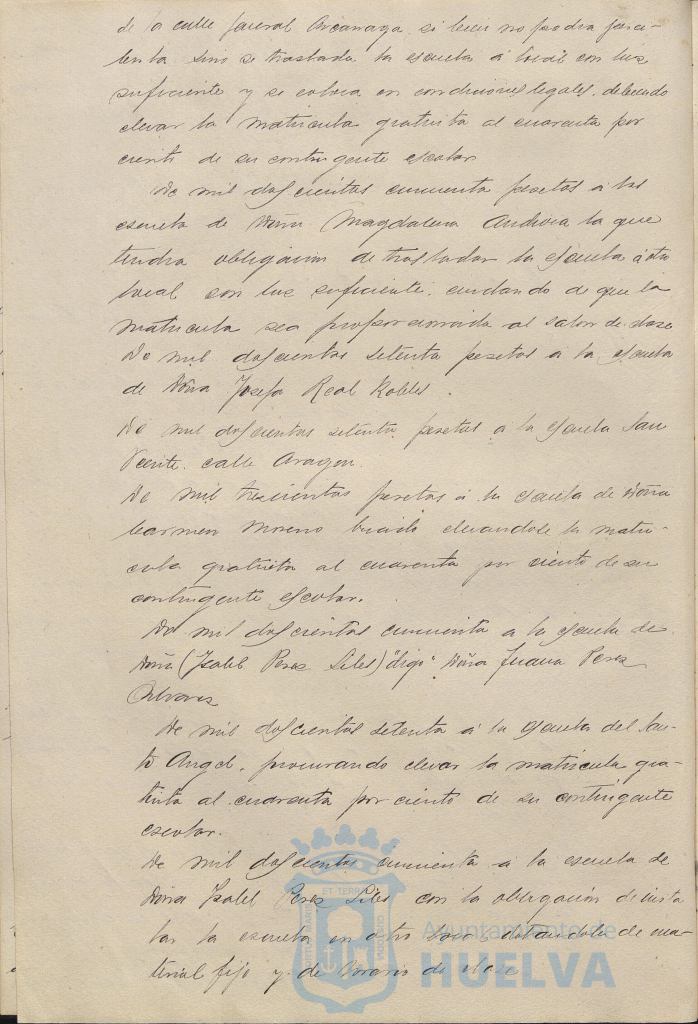 de la calle general Arcarraga si bien no podra perci-
birla sino se traslada la escuela á local con luz
suficiente y se coloca en condiciones legales, debiendo
elevar la matricula gratuita al cuarenta por
ciento de su contingente escolar
De mil doscientas cincuenta pesetas á las
escuela de Doña Magdalena Andivia la que
tendra obligacion de trasladar la escuela á otro
local con luz suficiente. cuidando de que la
matricula sea proporcionada al salon de clase
De mil doscientas setenta pesetas á la escuela
de Doña Josefa Real Robles.
De mil doscientas setenta pesetas á la escuela San
Vicente. calle Aragon.
De mil trescientas pesetas á la escuela de Doña
Carmen Moreno elevandose la matri-
cula gratuita al cuarenta por ciento de su
contingente escolar.
De mil doscientas cincuenta á la escuela de
Doña (Isabel Perez Siles) "digo" Doña Juana Perez
Alvarez
De mil doscientas setenta á la escuela del San-
to Angel, procurando elevar la matricula gra-
tuita al cuarenta por ciento de su contingente
escolar.
De mil doscientas cincuenta á la escuela de
Doña Isabel Perez Siles con la obligación de insta
lar la escuela en otro local dotandola de ma-
terial fijo y de horario de clase
Ayuntamiento de
HUELVA